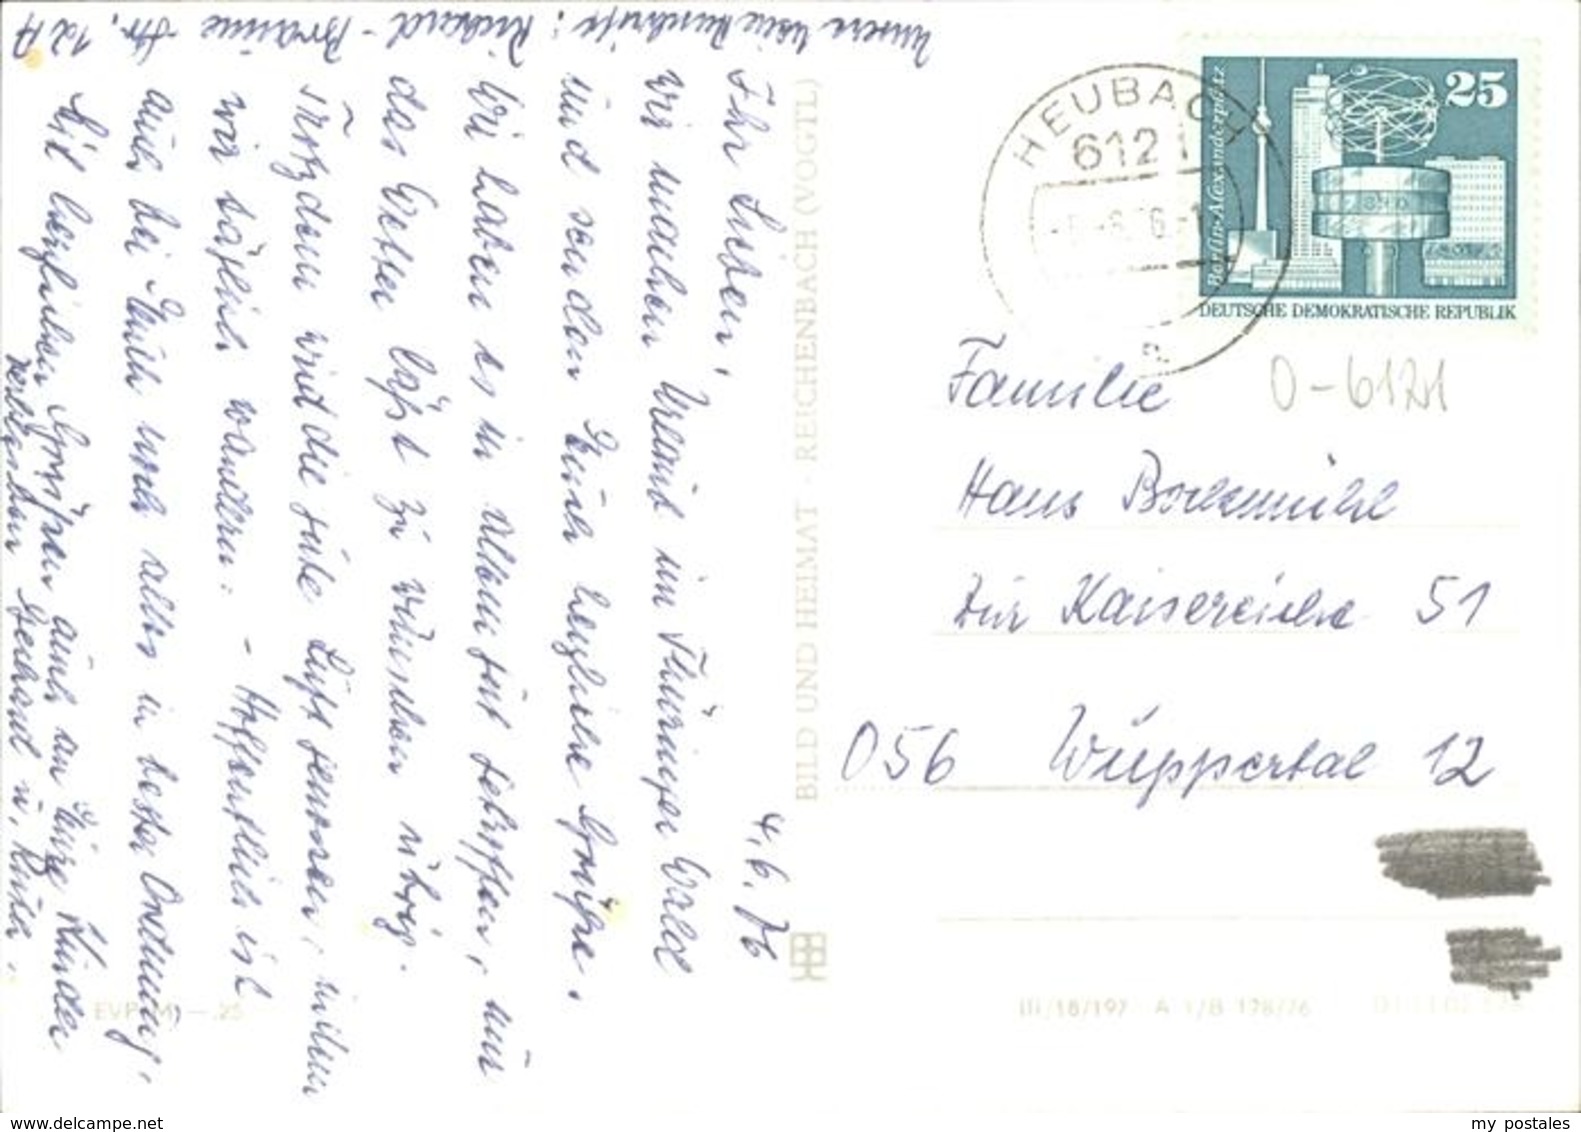 Unsere neue Anschrift: Richard - Bräutie Str. 12 A
4.6.76
Ihr Lieben,
wir machen Urlaub im Thüringer Wald
und senden Euch herzliche Grüße.
Wir haben es in Albin gut getroffen, nur
das Wetter läßt zu wünschen übrig.
Trotzdem wird die gute Luft genossen, indem
wir täglich wandern. - Hoffentlich ist
auch bei Euch noch alles in bester Ordnung.
Mit herzlichen Grüßen auch an Eure Kinder
verbleiben Gerhard u. Ruth.
BILD UND HEIMAT · REICHENBACH (VOGTL)
EVP (M) —.25
HEUBACH
6121
a
Berlin-Alexanderplatz
25
DEUTSCHE DEMOKRATISCHE REPUBLIK
O-6121
Familie
Hans Bockemühl
Zur Kaisereiche 51
056 Wuppertal 12
III/18/197 A 1/B 128/76
www.delcampe.net
my postales